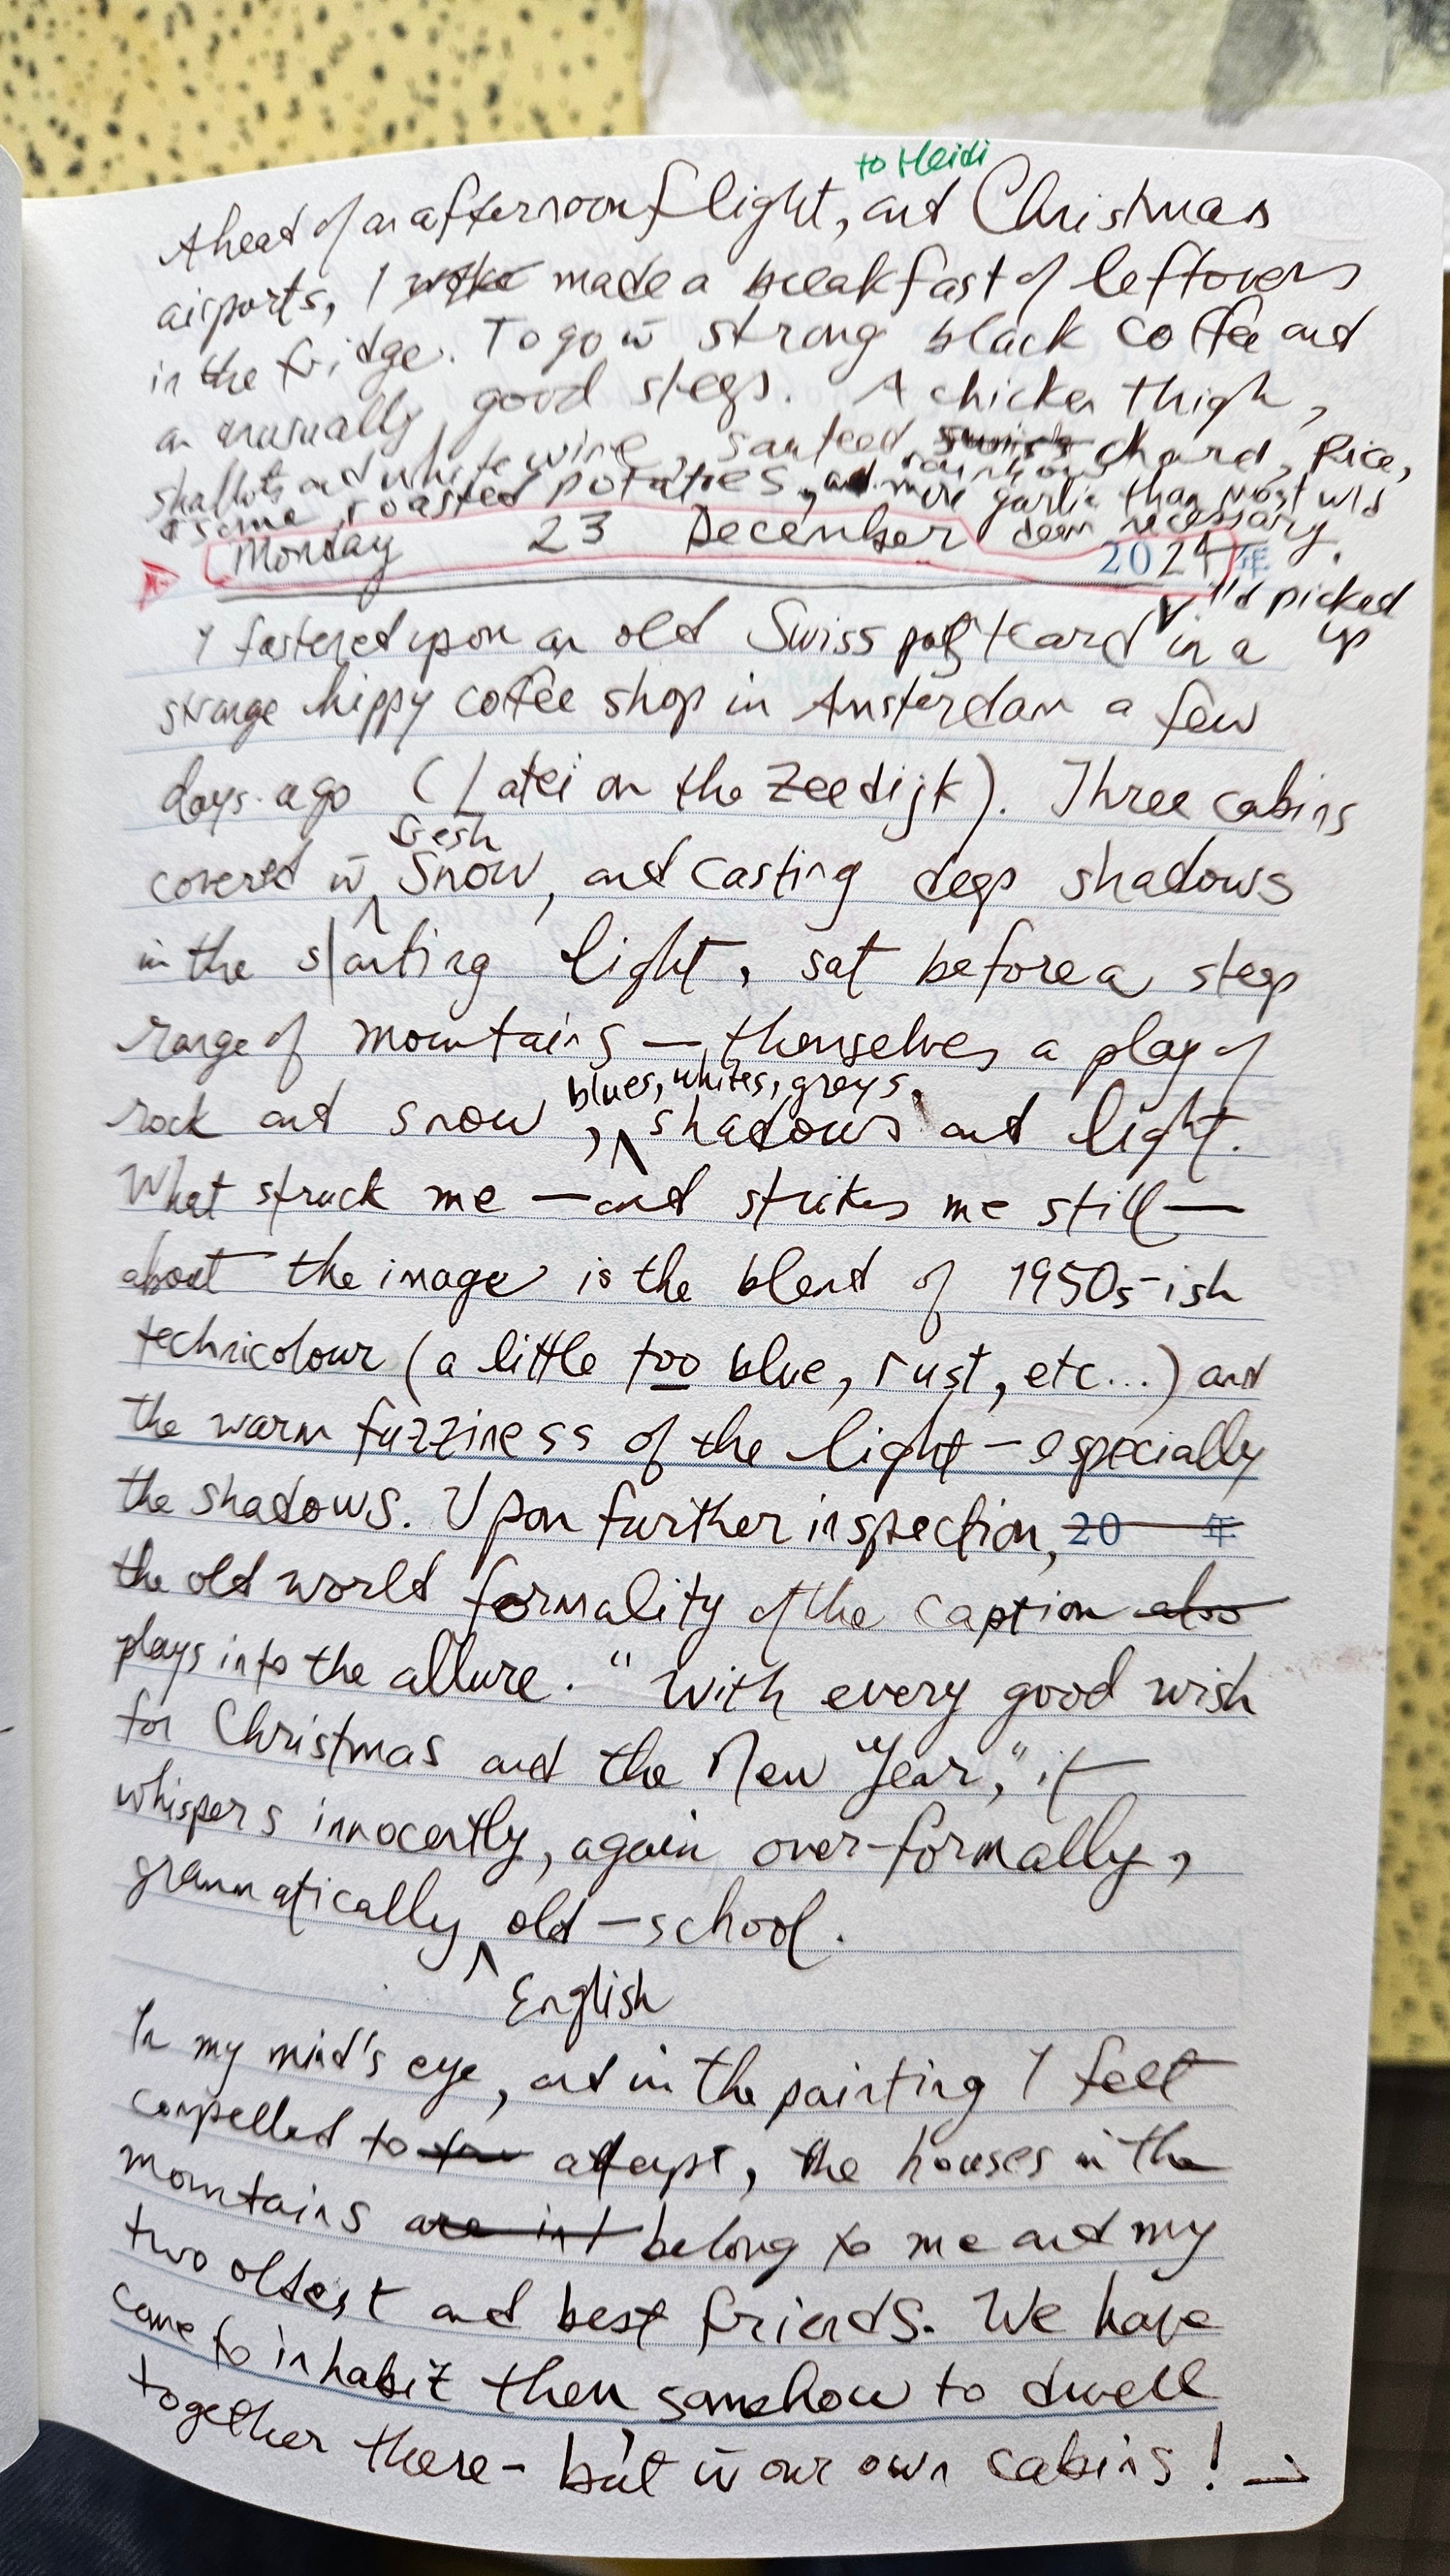 to Heidi
Ahead of an afternoon flight, and Christmas
airports, I woke made a breakfast of leftovers
in the fridge. To go w̄ strong black coffee and
an unusually good sleep. A chicken thigh,
shallots and white wine, sauteed swiss rainbow chard, rice,
& some roasted potatoes, and more garlic than most wld
deem necessary.
Monday 23 December 2024年
I fastened upon an old Swiss postcard I'd picked up in a
strange hippy coffee shop in Amsterdam a few
days ago (Latei on the Zeedijk). Three cabins
covered w̄ fresh snow, and casting deep shadows
in the slanting light, sat before a steep
range of mountains — themselves a play of
rock and snow, blues, whites, greys, shadows and light.
What struck me — and strikes me still —
about the image is the blend of 1950s-ish
technicolour (a little too blue, rust, etc...) and
the warm fuzziness of the light – especially
the shadows. Upon further inspection, 20 年
the old world formality of the caption also
plays into the allure. "With every good wish
for Christmas and the New Year," it
whispers innocently, again over-formally,
grammatically English old-school.
In my mind's eye, and in the painting I felt
compelled to attempt, the houses in the
mountains are int belong to me and my
two oldest and best friends. We have
come to inhabit them somehow, to dwell
together there – but w̄ our own cabins! →